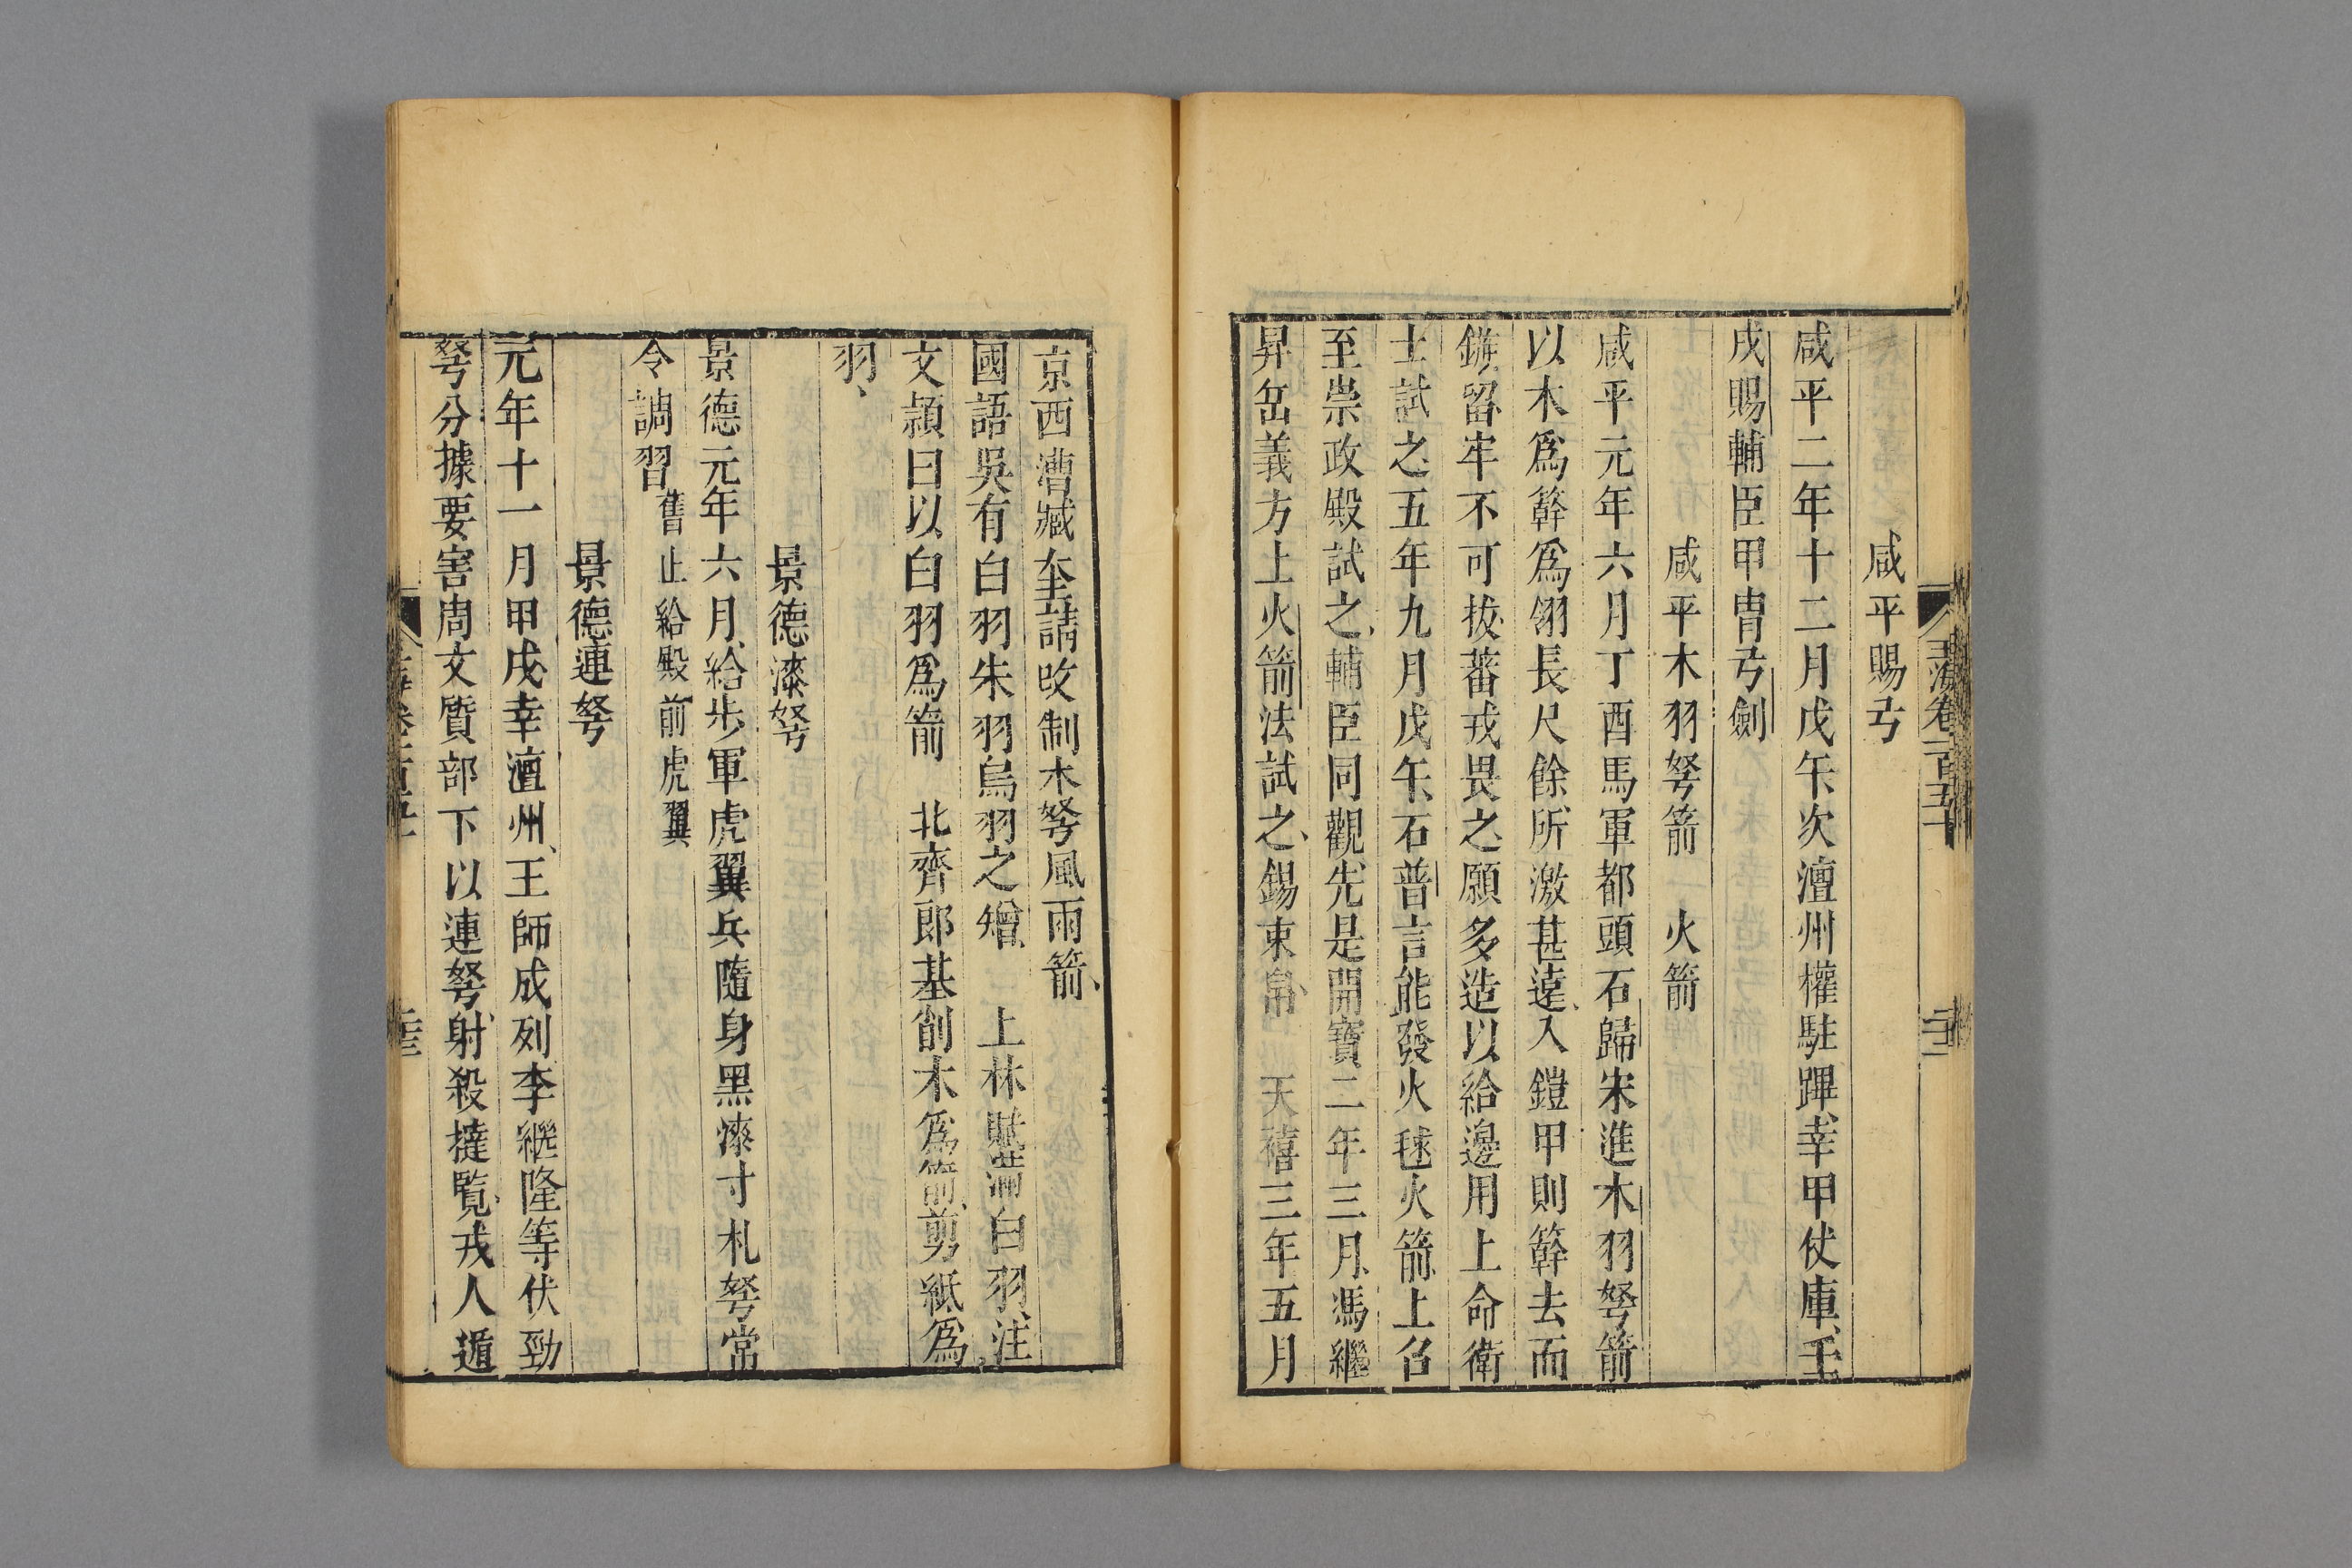 玉海卷一百五十
咸平賜弓
咸平二年十二月戊午次澶州權駐蹕幸甲仗庫壬
戌賜輔臣甲冑弓劍
咸平木羽弩箭 火箭
咸平元年六月丁酉馬軍都頭石歸宋進木羽弩箭
以木爲簳爲翎長尺餘所激甚遠入鎧甲則簳去而
鏃留牢不可拔蕃戎畏之願多造以給邊用上命衛
士試之五年九月戊午石普言能發火毬火箭上召
至崇政殿試之輔臣同觀先是開寶二年三月馮繼
昇岳義方上火箭法試之錫束帛 天禧三年五月
京西漕臧奎請改制木弩風雨箭
國語吳有白羽朱羽烏羽之矰 上林賦滿白羽注
文穎曰以白羽爲箭 北齊郎基削木爲箭剪紙爲
羽
景德漆弩
景德元年六月給步軍虎翼兵隨身黑漆寸札弩常
令調習舊止給殿前虎翼
景德連弩
元年十一月甲戌幸澶州王師成列李繼隆等伏勁
弩分據要害周文質部下以連弩射殺撻覽戎人遁